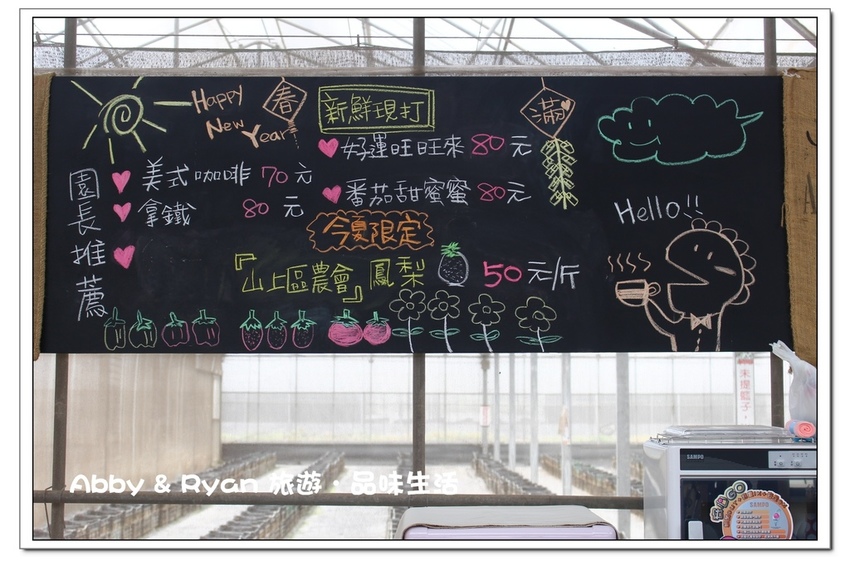 Happy
New
Year
春
新鮮現打
滿
好運旺旺來 80元
園長推薦
美式咖啡 70元
拿鐵 80元
番茄甜蜜蜜 80元
今夏限定
『山上區農會』鳳梨 50元/斤
Hello!!
未提籃子,
SAMPO
SAMPO
Abby & Ryan 旅遊‧品味生活